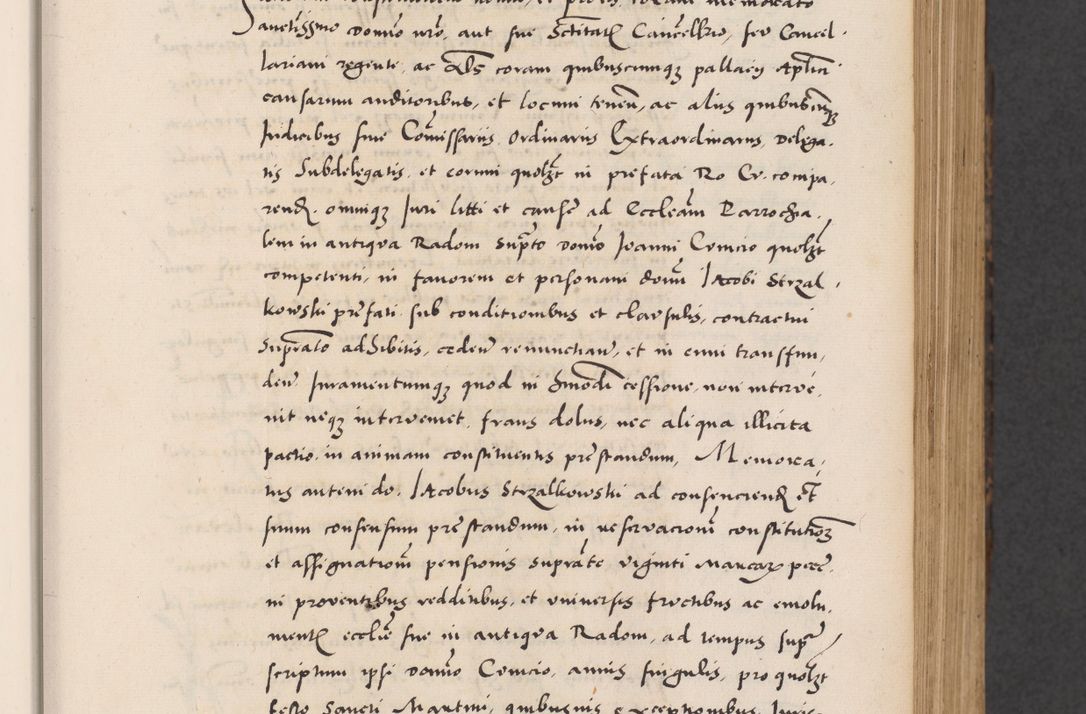 Sanctissimo domino nro, aut sue Sctitatis Cancellrio, seu Cancel-
lariam regente, ac Rdis coram quibuscumq pallacy Aplici
causarum auditoribus, et locum tenen, ac aliis quibuscumq
Iudicibus sive Comissariis, Ordinariis Extraordinariis, delega-
tis Subdelegatis, et eorum quolzt in prefata Ro Cr. compa-
rend. omniq Iuri litti et cause ad Eccleam Parrochia-
lem in antiqva Radom Suprato domno Ioanni Cenicio quolzt
competenti, in fauorem et personam domni Iacobi Strzal-
kowski prefati sub conditionibus et clavsulis, contractui
Suprato adhibitis, ceden renunctian, et in eum transfun-
den Iuramentumq quod in hmodi cessione, non interve-
nit neq interveniet, fraus dolus, nec aliqua illicita
pactio, in animam constituentis prestandum, Memora-
tus autem do. Iacobus Strzalkowski ad consenciend et
suum consensum prestandum, in reservacioni constitutioni
et assignationi pensionis suprate viginti marcarum pecc.
in proventibus redditibus, et vniversis fructibus ac emolu-
mentis ecclie sue in antiqva Radom, ad tempus supra
scriptum ipsi domno Cenicio, annis singulis, pro quolzt
festo Sancti Martini, quibusvis exceptionibus Iuris